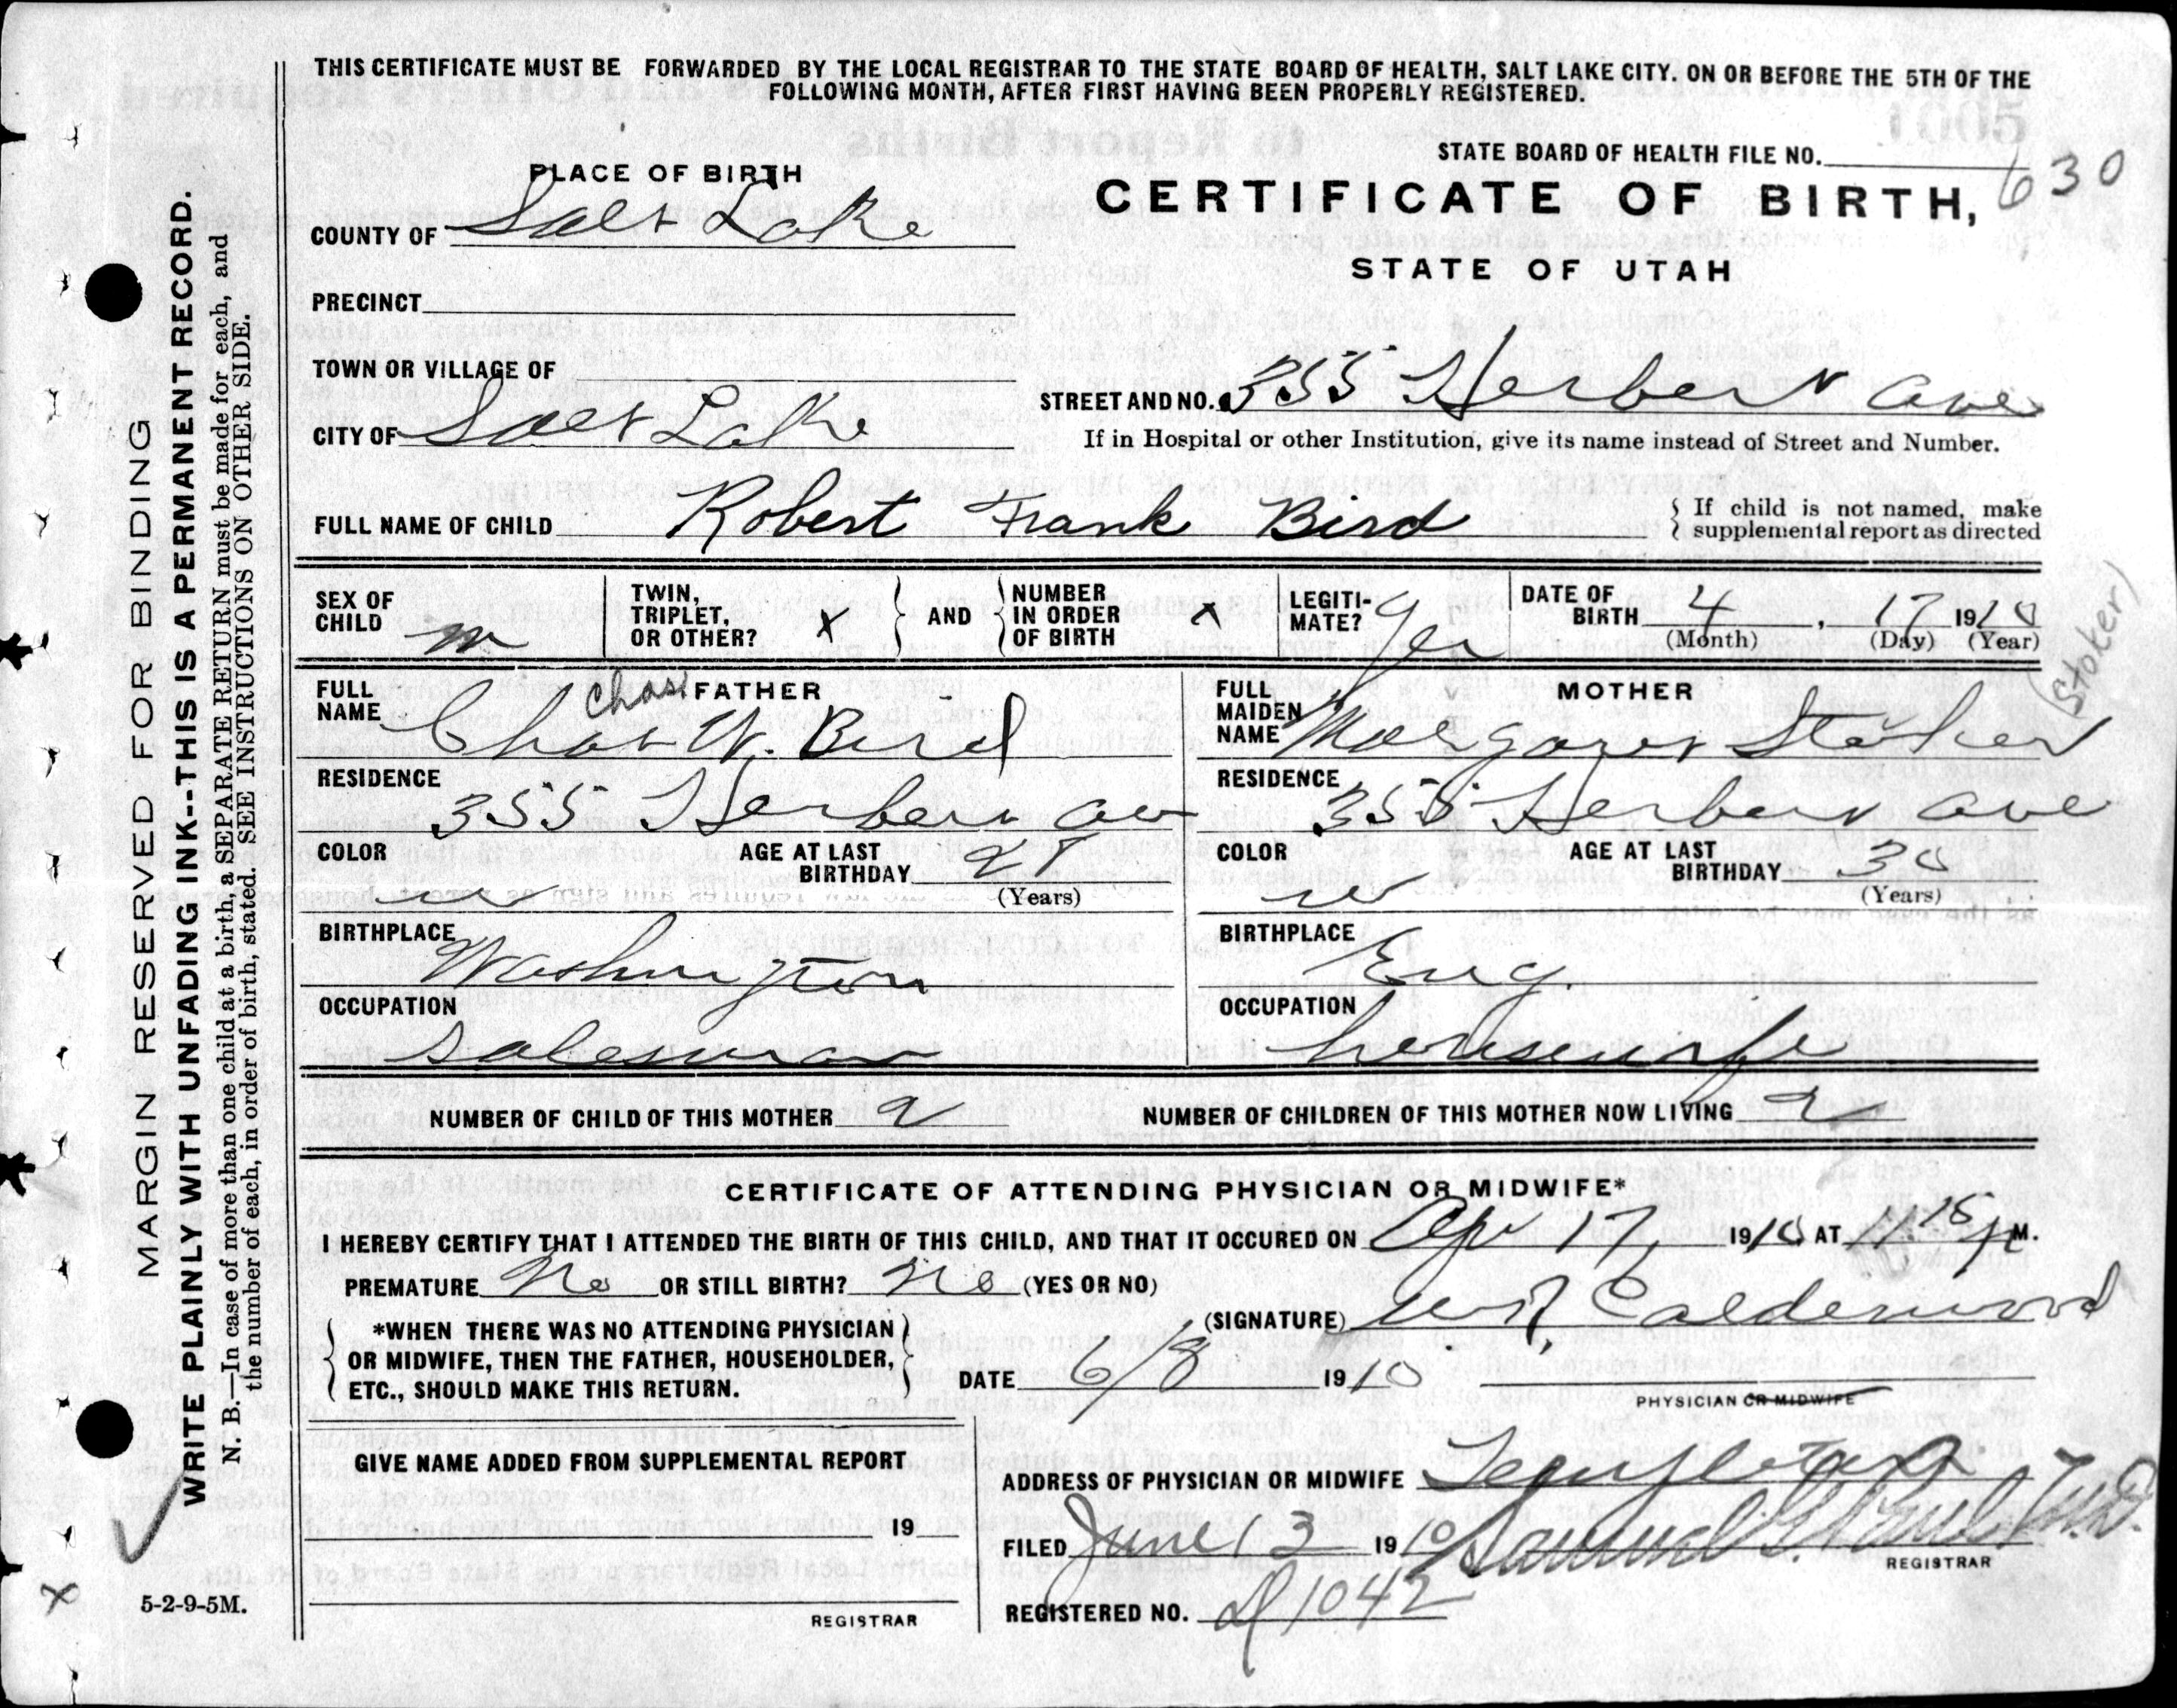 THIS CERTIFICATE MUST BE FORWARDED BY THE LOCAL REGISTRAR TO THE STATE BOARD OF HEALTH, SALT LAKE CITY. ON OR BEFORE THE 5TH OF THE
FOLLOWING MONTH, AFTER FIRST HAVING BEEN PROPERLY REGISTERED.
STATE BOARD OF HEALTH FILE NO. 630
PLACE OF BIRTH
CERTIFICATE OF BIRTH,
COUNTY OF Salt Lake
STATE OF UTAH
PRECINCT
TOWN OR VILLAGE OF
STREET AND NO. 355 Herbert Ave
CITY OF Salt Lake
If in Hospital or other Institution, give its name instead of Street and Number.
FULL NAME OF CHILD Robert Frank Bird
If child is not named, make
supplemental report as directed
SEX OF CHILD m
TWIN, TRIPLET, OR OTHER? x
AND
NUMBER IN ORDER OF BIRTH x
LEGITI-MATE? Yes
DATE OF BIRTH 4, 17 1910
(Month) (Day) (Year)
FATHER
Chas
FULL NAME Chas W. Bird
RESIDENCE
355 Herbert Av
COLOR w
AGE AT LAST BIRTHDAY
(Years)
BIRTHPLACE
Washington
OCCUPATION
Salesman
MOTHER
(Stoker)
FULL MAIDEN NAME Margaret Stoker
RESIDENCE
355 Herbert Ave
COLOR w
AGE AT LAST BIRTHDAY 30
(Years)
BIRTHPLACE
Eng.
OCCUPATION
housewife
NUMBER OF CHILD OF THIS MOTHER 2
NUMBER OF CHILDREN OF THIS MOTHER NOW LIVING 2
CERTIFICATE OF ATTENDING PHYSICIAN OR MIDWIFE*
I HEREBY CERTIFY THAT I ATTENDED THE BIRTH OF THIS CHILD, AND THAT IT OCCURED ON Apr 17, 1910 AT 11 15 P M.
PREMATURE No OR STILL BIRTH? No (YES OR NO)
(SIGNATURE) W R Calderwood
*WHEN THERE WAS NO ATTENDING PHYSICIAN
OR MIDWIFE, THEN THE FATHER, HOUSEHOLDER,
ETC., SHOULD MAKE THIS RETURN.
DATE 6/8 1910
PHYSICIAN OR MIDWIFE
GIVE NAME ADDED FROM SUPPLEMENTAL REPORT
19
REGISTRAR
ADDRESS OF PHYSICIAN OR MIDWIFE Templeton
FILED June 13 1910 Samuel G. Paul M.D.
REGISTRAR
REGISTERED NO. 1042
5-2-9-5M.
MARGIN RESERVED FOR BINDING
WRITE PLAINLY WITH UNFADING INK--THIS IS A PERMANENT RECORD.
N. B.—In case of more than one child at a birth, a SEPARATE RETURN must be made for each, and
the number of each, in order of birth, stated. SEE INSTRUCTIONS ON OTHER SIDE.